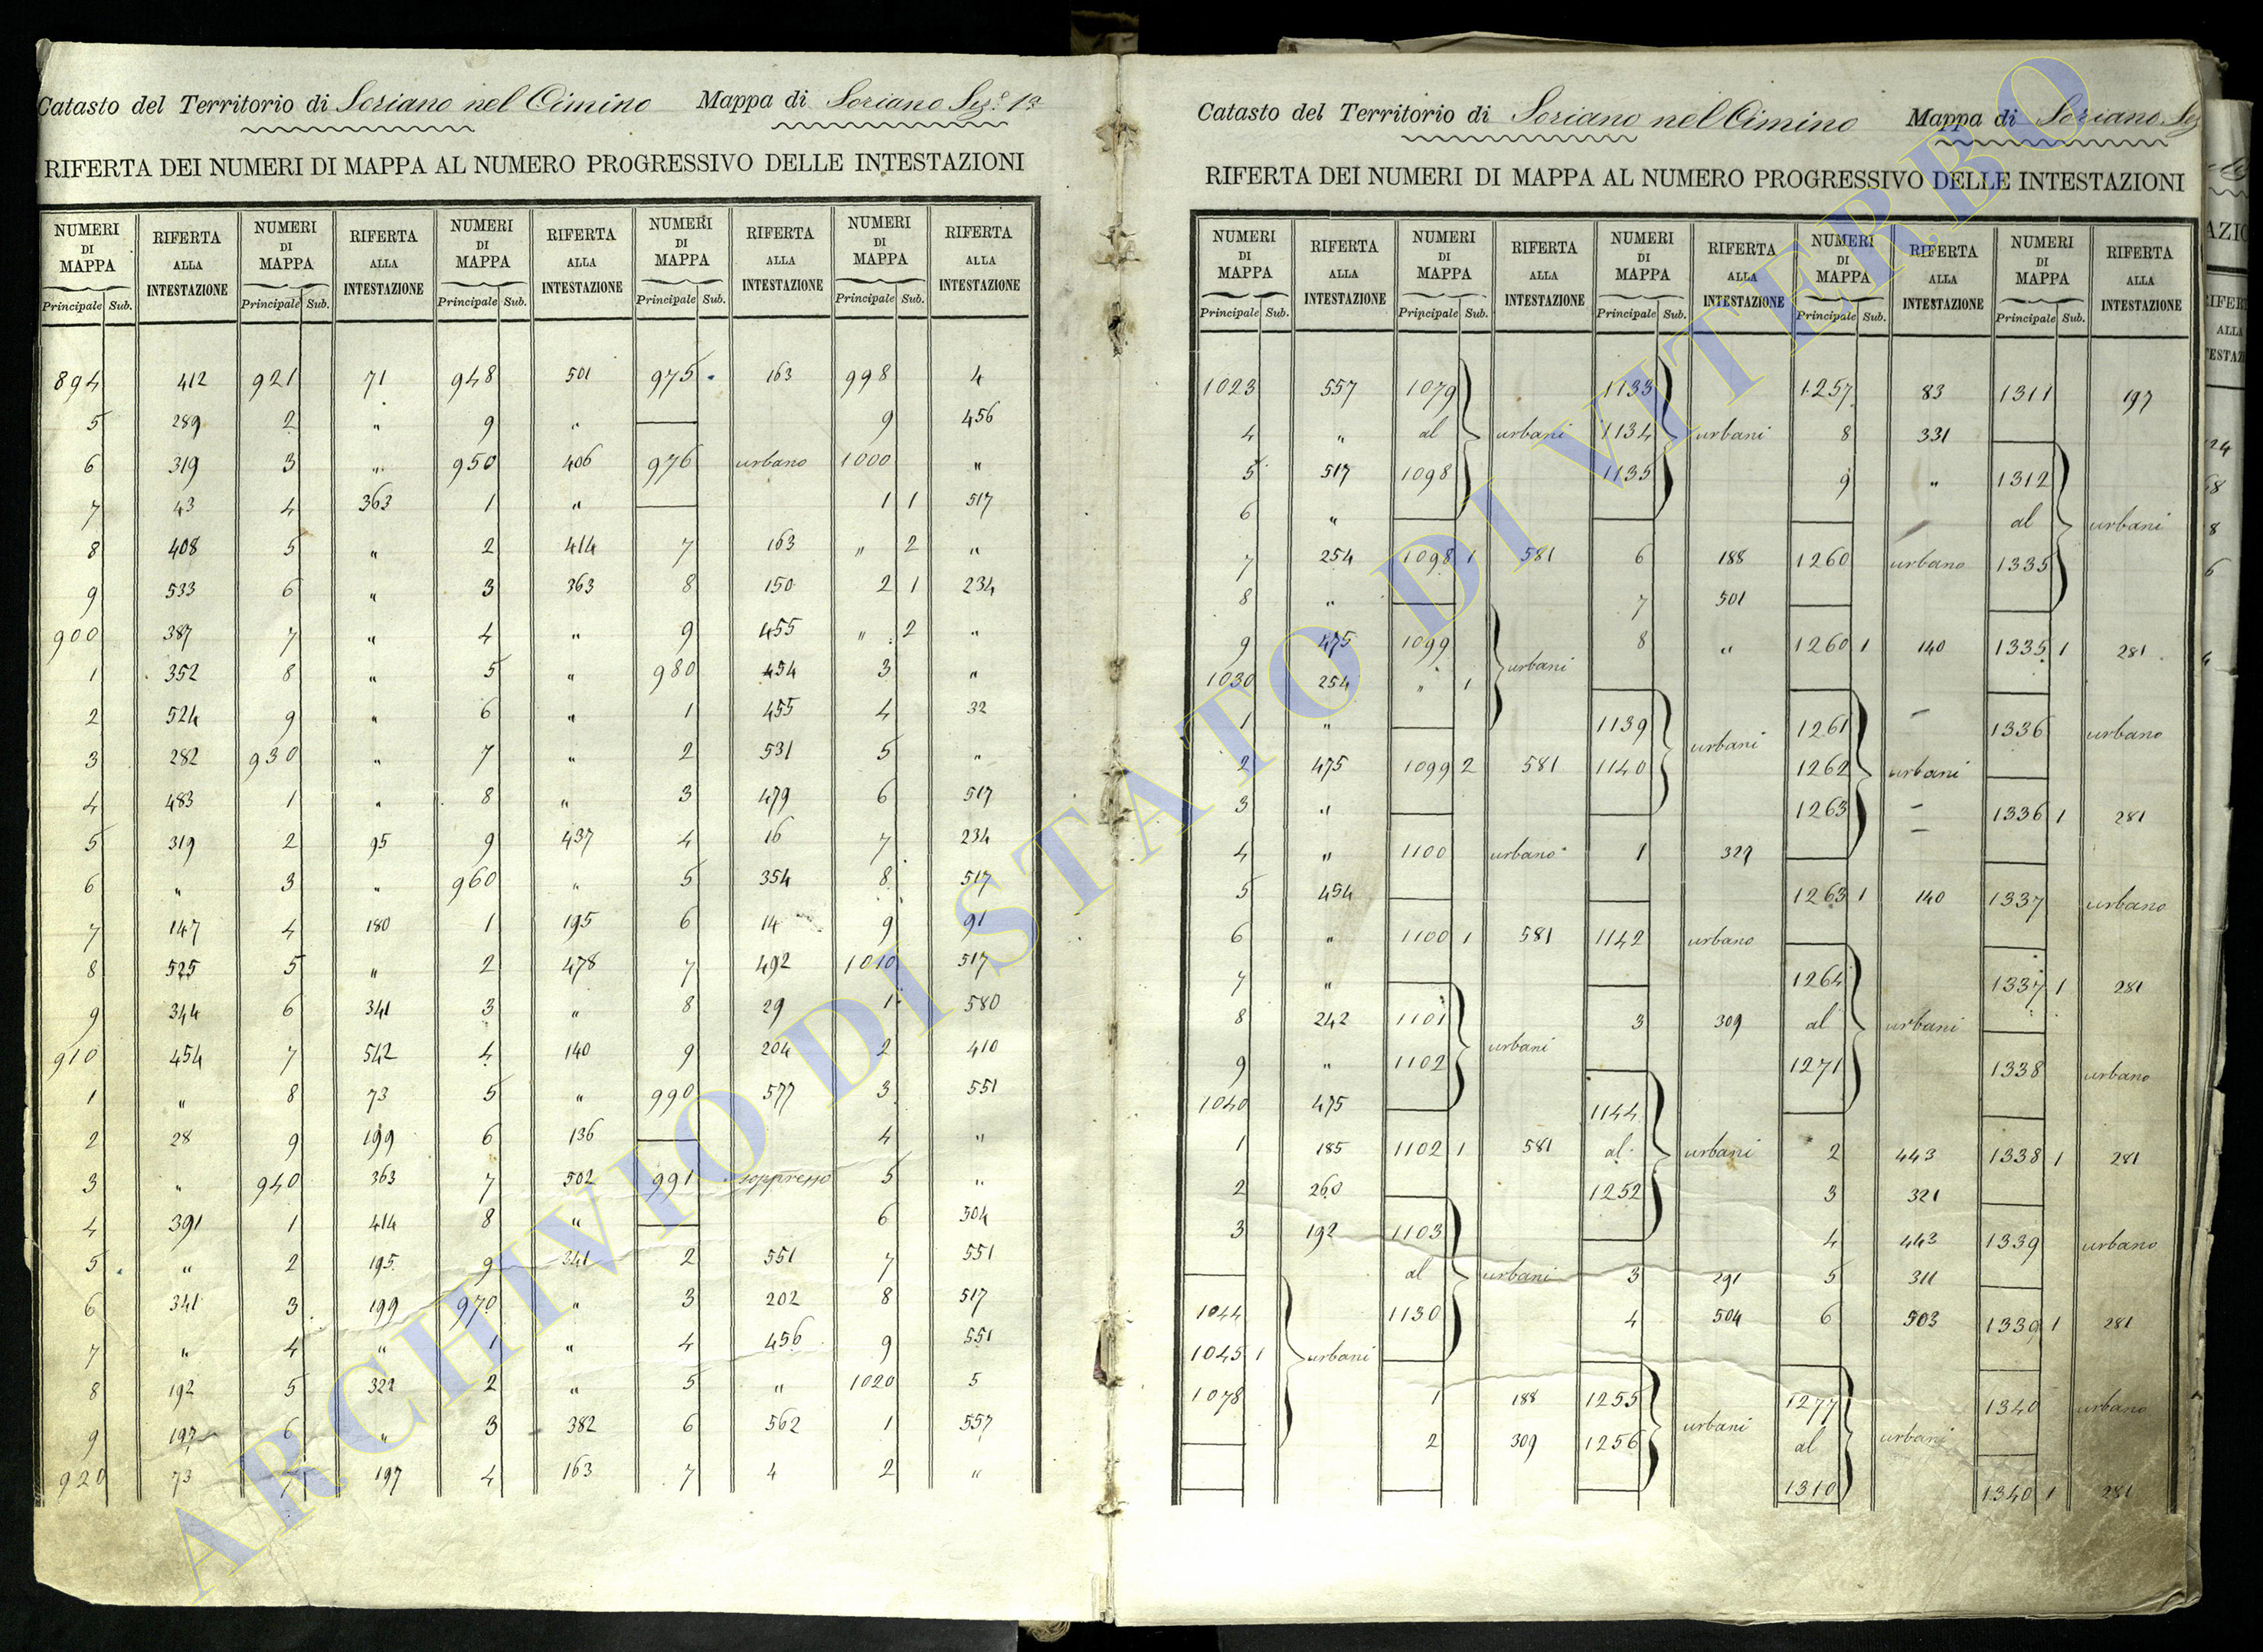 Catasto del Territorio di Soriano nel Cimino Mappa di Soriano Sez.e 1a
RIFERTA DEI NUMERI DI MAPPA AL NUMERO PROGRESSIVO DELLE INTESTAZIONI
NUMERI DI MAPPA RIFERTA ALLA INTESTAZIONE NUMERI DI MAPPA RIFERTA ALLA INTESTAZIONE NUMERI DI MAPPA RIFERTA ALLA INTESTAZIONE NUMERI DI MAPPA RIFERTA ALLA INTESTAZIONE NUMERI DI MAPPA RIFERTA ALLA INTESTAZIONE
Principale Sub. Principale Sub. Principale Sub. Principale Sub. Principale Sub.
894 412 921 71 948 501 975 163 998 4
5 289 2 " 9 " 9 456
6 319 3 " 950 406 976 urbano 1000 "
7 43 4 363 1 " 1 1 517
8 408 5 " 2 414 7 163 " 2 "
9 533 6 " 3 363 8 150 2 1 234
900 387 7 " 4 " 9 455 " 2 "
1 352 8 " 5 " 980 454 3 "
2 524 9 " 6 " 1 455 4 32
3 282 930 " 7 " 2 531 5 "
4 483 1 " 8 " 3 479 6 517
5 319 2 95 9 437 4 16 7 234
6 " 3 " 960 " 5 354 8 517
7 147 4 180 1 195 6 14 9 91
8 525 5 " 2 478 7 492 1010 517
9 344 6 341 3 " 8 29 1 580
910 454 7 542 4 140 9 204 2 410
1 " 8 73 5 " 990 577 3 551
2 28 9 199 6 136 4 "
3 " 940 363 7 502 991 soppresso 5 "
4 391 1 414 8 " 6 304
5 " 2 195 9 341 2 551 7 551
6 341 3 199 970 " 3 202 8 517
7 " 4 " 1 " 4 456 9 551
8 192 5 322 2 " 5 " 1020 5
9 197 6 " 3 382 6 562 1 557
920 73 7 197 4 163 7 4 2 "
Catasto del Territorio di Soriano nel Cimino Mappa di Soriano Sez
RIFERTA DEI NUMERI DI MAPPA AL NUMERO PROGRESSIVO DELLE INTESTAZIONI
NUMERI DI MAPPA RIFERTA ALLA INTESTAZIONE NUMERI DI MAPPA RIFERTA ALLA INTESTAZIONE NUMERI DI MAPPA RIFERTA ALLA INTESTAZIONE NUMERI DI MAPPA RIFERTA ALLA INTESTAZIONE NUMERI DI MAPPA RIFERTA ALLA INTESTAZIONE
Principale Sub. Principale Sub. Principale Sub. Principale Sub. Principale Sub.
1023 557 1079 1133 1257 83 1311 197
4 " al urbani 1134 urbani 8 331
5 517 1098 1135 9 " 1312
6 " al urbani
7 254 1098 1 581 6 188 1260 urbano 1335
8 " 7 501
9 475 1099 8 " 1260 1 140 1335 1 281
1030 254 " 1 urbani
1 " 1139 urbani 1261 1336 urbano
2 475 1099 2 581 1140 1262 urbani
3 " 1263 1336 1 281
4 " 1100 urbano 1 329
5 454 1263 1 140 1337 urbano
6 " 1100 1 581 1142 urbano
7 " 1264 1337 1 281
8 242 1101 urbani 3 309 al urbani
9 " 1102 1271 1338 urbano
1040 475 1144
1 185 1102 1 581 al urbani 2 443 1338 1 281
2 260 1252 3 321
3 192 1103 4 443 1339 urbano
al urbani 3 291 5 311
1044 1130 4 504 6 503 1339 1 281
1045 1 urbani
1078 1 188 1255 urbani 1277 1340 urbano
2 309 1256 al urbani
1310 1340 1 281
ARCHIVIO DI STATO DI VITERBO